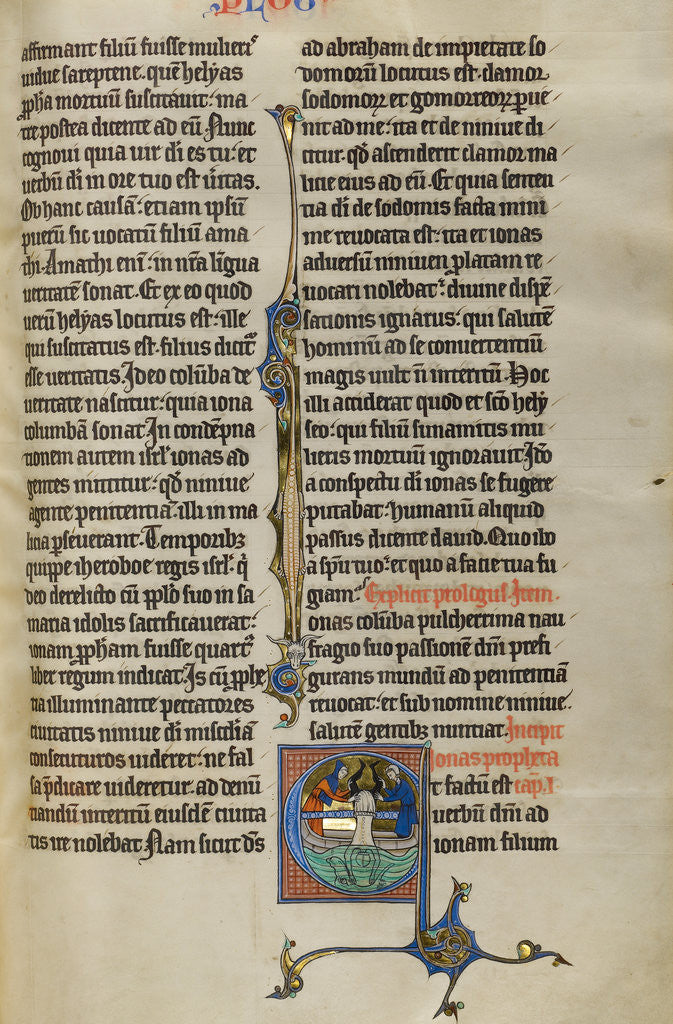 PLOG
affirmant filiū fuisse mulieris
uidue sareptene. quē helyas
ꝓpha mortuū suscitauit: ma
tre postea dicente ad eū. Nunc
cognoui quia uir dī es tu: et
uerbū dī in ore tuo est ūitas.
Ob hanc causā: etiam ipsū
puerū sic uocatū filiū ama
thi. Amathi enī: in nr̄a līgua
ueritatē sonat. Et ex eo quod
uerū helyas locutus est: ille
qui suscitatus est. filius dicitᷣ
esse ueritatis. Ideo colūba de
ueritate nascitur: quia iona
columbā sonat. In condēpna
tionem autem isrl̄ ionas ad
gentes mittitur: qd̄ niniue
agente penitentiā. illi in ma
licia ꝑseuerant. Temporibꝫ
quippe iheroboe regis isrl̄: q̄
deo derelicto cū ppl̄o suo in sa
maria idolis sacrificauerat:
ionam ꝓpham fuisse quartᷣ
liber regum indicat. Is cū ꝓphe
tia illuminante peccatores
ciuitatis niniue dī misc̄diā
consecuturos uideret: ne fal
sa p̄dicare uideretur. ad denū
tiandū interitū eiusdē ciuita
tis ire nolebat. Nam sicut dn̄s
ad abraham de impietate so
domorū locutus est. clamor
sodomoꝝ et gomorreoꝝ ꝑue
nit ad me: ita et de niniue di
citur. qd̄ ascenderit clamor ma
licie eius ad eū. Et quia senten
tia dī de sodomis facta mini
me reuocata est: ita et ionas
aduersū niniuen ꝓlatam re
uocari nolebat: diuine dispē
sationis ignarus: qui salutē
hominū ad se conuertentiū
magis uult n̄ interitū. Hoc
illi acciderat quod et sc̄o hely
seo: qui filiū sunamitis mu
lieris mortuū ignorauit. Ido
a conspectu dī ionas se fugere
putabat: humanū aliquid
passus dicente dauid. Quo ibo
a sp̄u tuo: et quo a facie tua fu
giam. Explicit prologus. Item.
onas colūba pulcherrima nau
fragio suo passionē dn̄i prefi
gurans mundū ad penitentiā
reuocat: et sub nomine niniue.
salutē gentibꝫ nuntiat. Incipit
ionas propheta
t factū est cap. I.
uerbū dn̄i ad
ionam filium